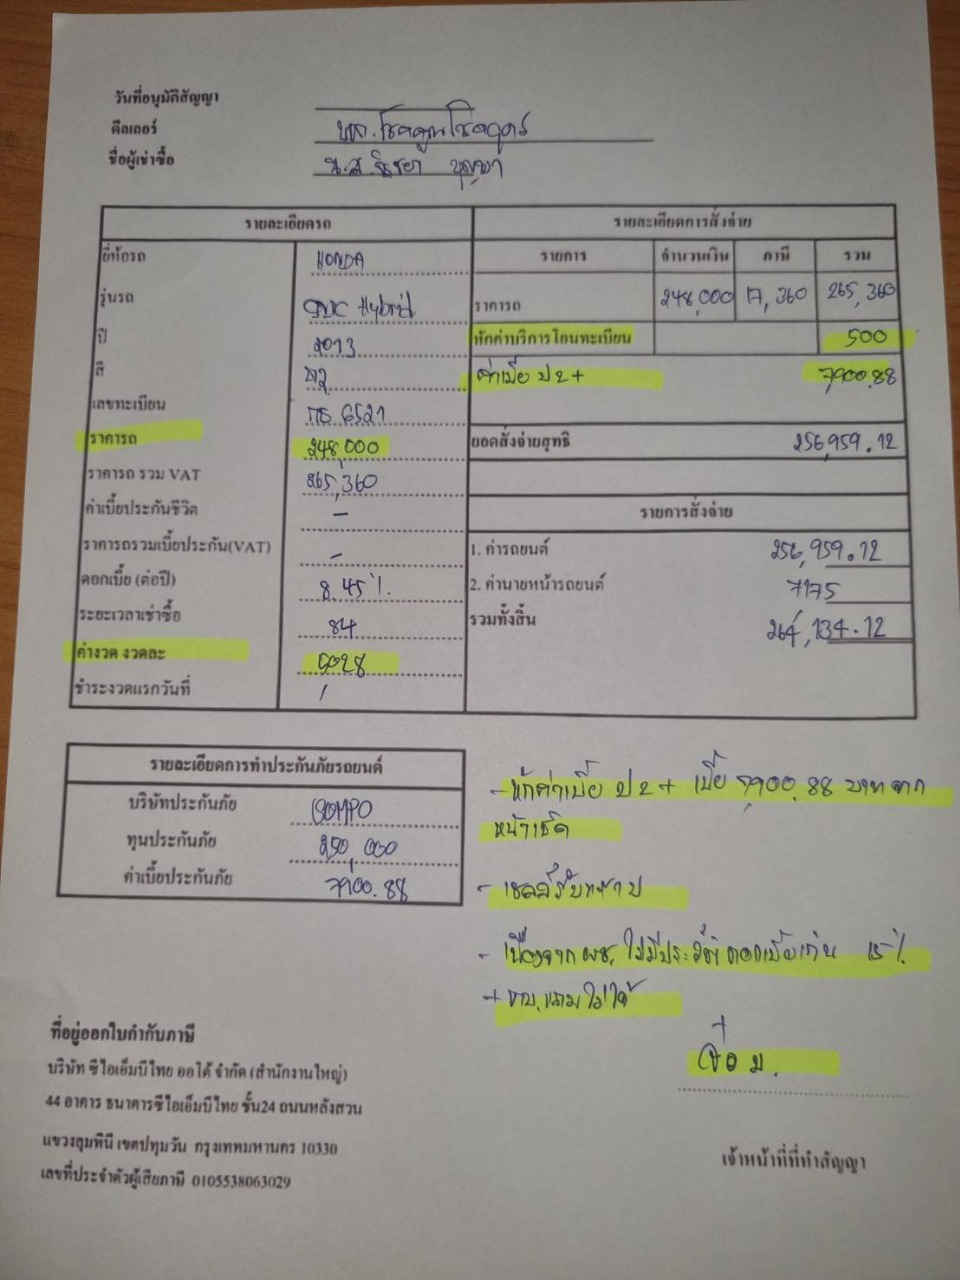 วันที่อนุมัติสัญญา
ดีลเลอร์ หจก.โชคคูณโชคอุดร
ชื่อผู้เช่าซื้อ น.ส.
รายละเอียดรถ
ยี่ห้อรถ HONDA
รุ่นรถ Hybrid
ปี 2013
สี
เลขทะเบียน 6521
ราคารถ 248,000
ราคารถ รวม VAT 265,360
ค่าเบี้ยประกันชีวิต -
ราคารถรวมเบี้ยประกัน(VAT) -
ดอกเบี้ย (ต่อปี) 8.45%
ระยะเวลาเช่าซื้อ 84
ค่างวด งวดละ 5028
ชำระงวดแรกวันที่ /
รายละเอียดการสั่งจ่าย
รายการ จำนวนเงิน ภาษี รวม
ราคารถ 248,000 17,360 265,360
หักค่าบริการโอนทะเบียน 500
ค่าเบี้ย ป 2+ 7900.88
ยอดสั่งจ่ายสุทธิ 256,959.12
รายการสั่งจ่าย
1. ค่ารถยนต์ 256,959.12
2. ค่านายหน้ารถยนต์ 7175
รวมทั้งสิ้น 264,134.12
รายละเอียดการทำประกันภัยรถยนต์
บริษัทประกันภัย SOMPO
ทุนประกันภัย 250,000
ค่าเบี้ยประกันภัย 7900.88
- หักค่าเบี้ย ป 2+ เบี้ย 7,900.88 บาท จาก
หน้าเช็ค
- เซลล์รับทราบ
- เนื่องจาก ผช. ไม่มีประวัติ ดอกเบี้ยเกิน 15%
ที่อยู่ออกใบกำกับภาษี
บริษัท ซีไอเอ็มบีไทย ออโต้ จำกัด (สำนักงานใหญ่)
44 อาคาร ธนาคารซีไอเอ็มบีไทย ชั้น24 ถนนหลังสวน
แขวงลุมพินี เขตปทุมวัน กรุงเทพมหานคร 10330
เลขที่ประจำตัวผู้เสียภาษี 0105538063029
เจ้าหน้าที่ที่ทำสัญญา